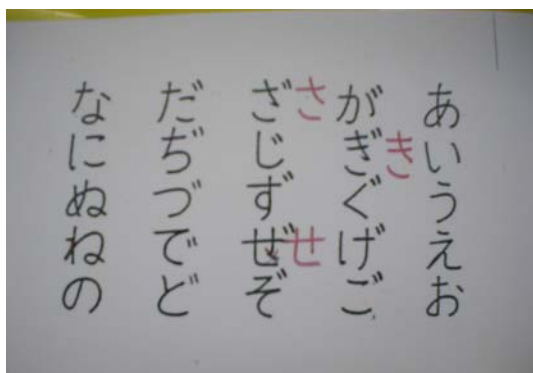 あいうえお
き
がぎぐげご
さ
せ
ざじずぜぞ
だぢづでど
なにぬねの